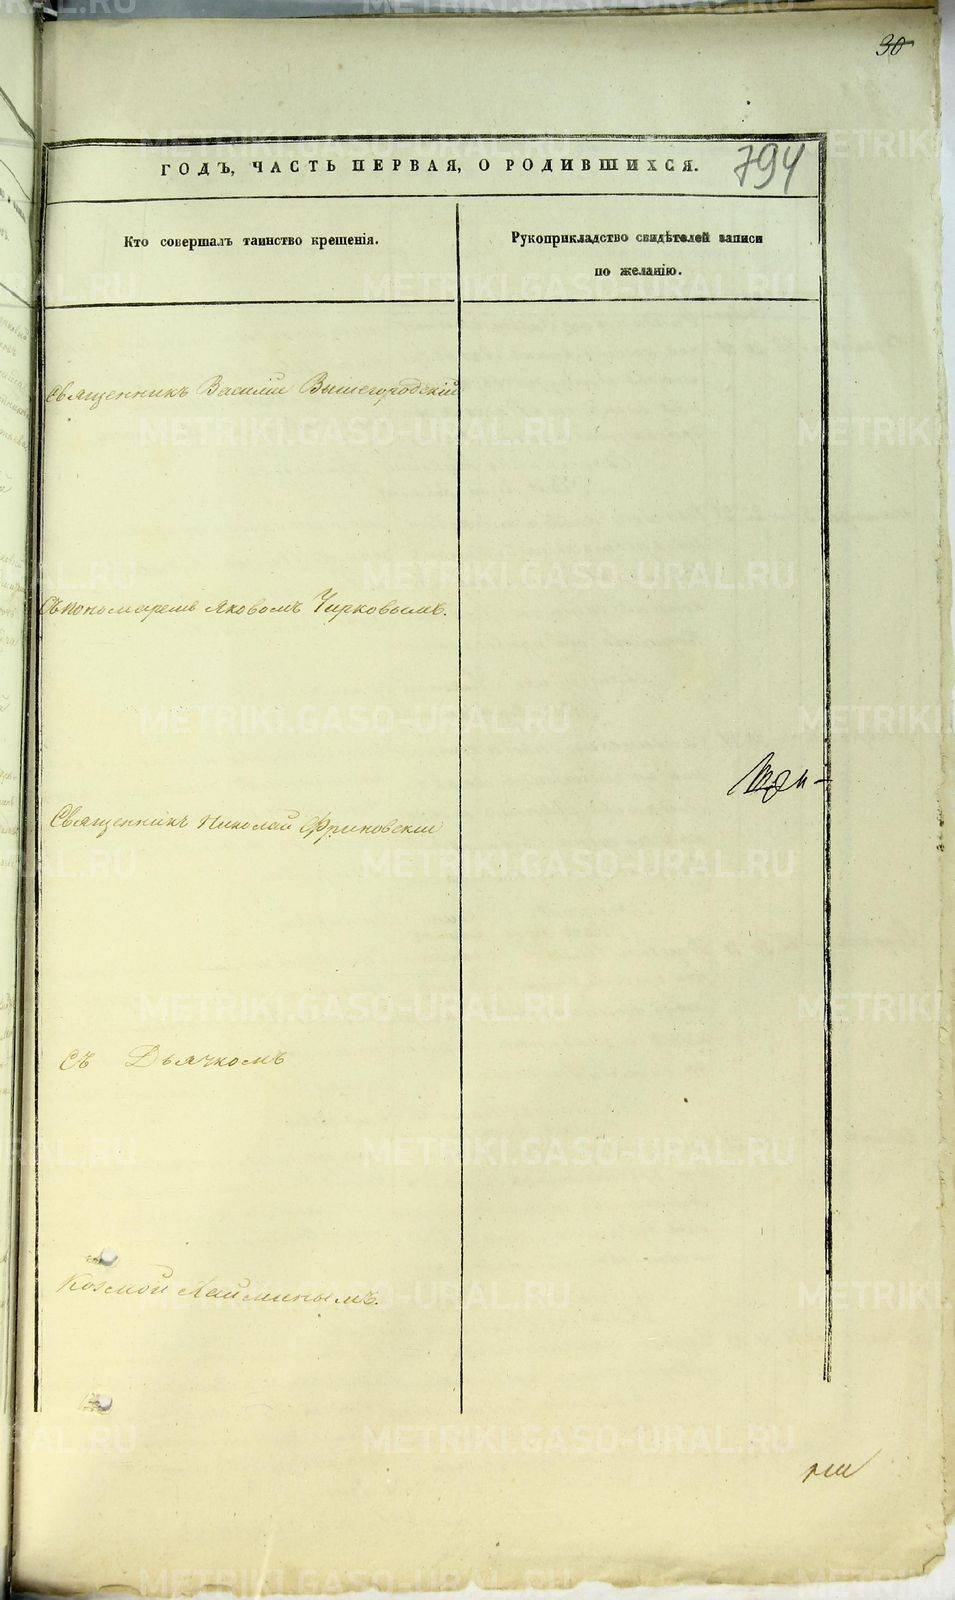 30
794
ГОДЪ, ЧАСТЬ ПЕРВАЯ, О РОДИВШИХСЯ.
Кто совершалъ таинство крещенія.
Рукоприкладство свидѣтелей записи
по желанію.
Священникъ Василій Вышегородскій
Съ пономаремъ Яковомъ Чирковымъ.
Священникъ Николай
Съ Дьячкомъ
Козмой
METRIKI.GASO-URAL.RU